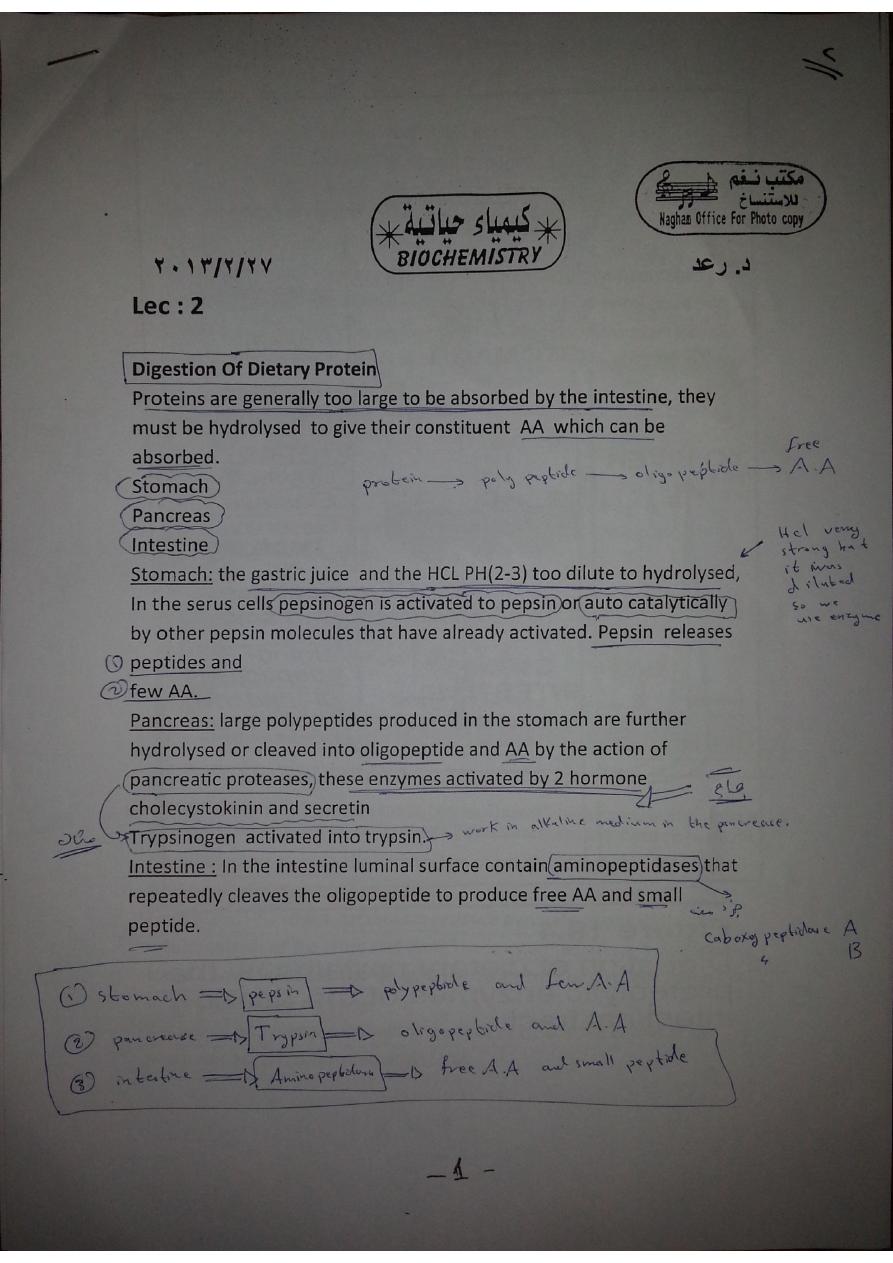 مكتب نغم
للاستنساخ
Naghan Office For Photo copy
كيمياء حياتية
BIOCHEMISTRY
٢٠١٣/٢/٢٧
د. رعد
Lec : 2
Digestion Of Dietary Protein
Proteins are generally too large to be absorbed by the intestine, they
must be hydrolysed to give their constituent AA which can be
absorbed.
protein → poly peptide → oligo peptide → free A.A
Stomach
Pancreas
Intestine
Hcl very
strong but
it
diluted
so we
use enzyme
Stomach: the gastric juice and the HCL PH(2-3) too dilute to hydrolysed,
In the serus cells pepsinogen is activated to pepsin or auto catalytically
by other pepsin molecules that have already activated. Pepsin releases
① peptides and
② few AA.
Pancreas: large polypeptides produced in the stomach are further
hydrolysed or cleaved into oligopeptide and AA by the action of
pancreatic proteases, these enzymes activated by 2 hormone
cholecystokinin and secretin
Trypsinogen activated into trypsin. → work in alkaline medium in the pancrease.
Intestine : In the intestine luminal surface contain aminopeptidases that
repeatedly cleaves the oligopeptide to produce free AA and small
peptide.
Caboxy peptidase A
B
① stomach ⇒ pepsin ⇒ polypeptide and few A.A
② pancrease ⇒ Trypsin ⇒ oligopeptide and A.A
③ intestine ⇒ Aminopeptidase ⇒ free A.A and small peptide
- 1 -